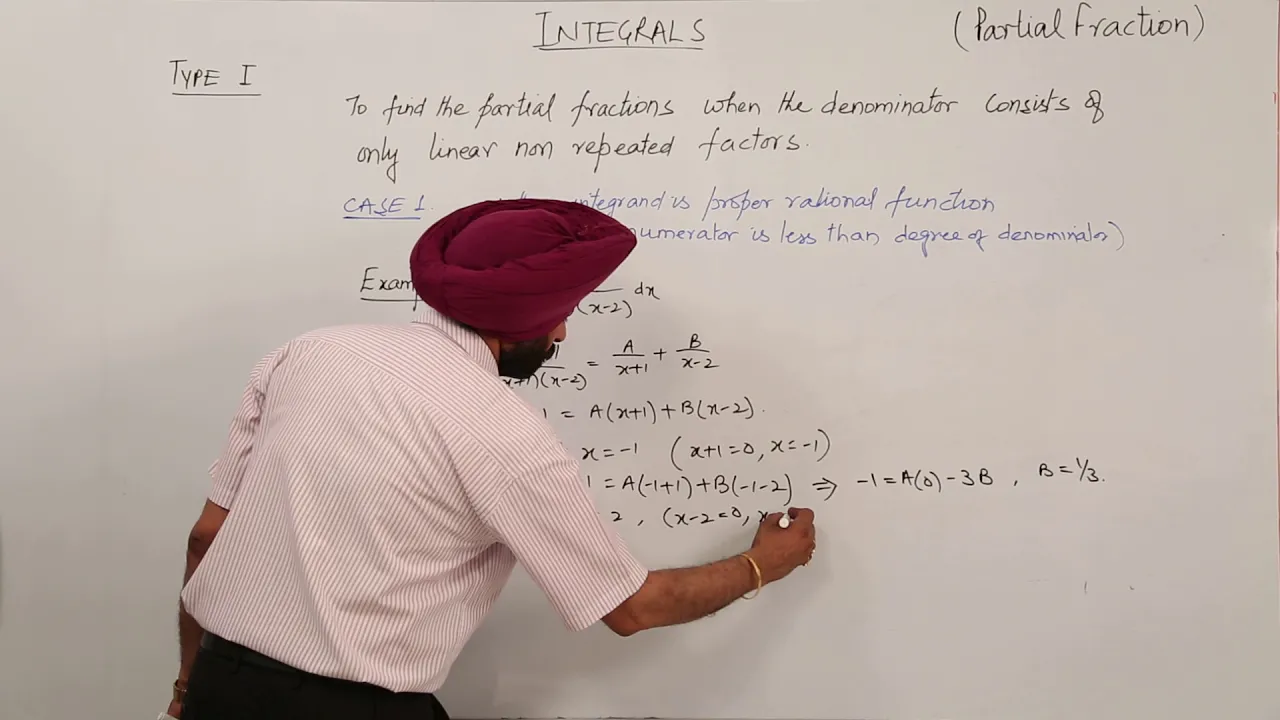 INTEGRALS (Partial Fraction)
TYPE I
To find the partial fractions when the denominator consists of
only linear non repeated factors.
CASE 1. integrand is proper rational function
numerator is less than degree of denominator)
Exam
(x-2) dx
1/(x+1)(x-2) = A/(x+1) + B/(x-2)
1 = A(x+1) + B(x-2).
x = -1 (x+1=0, x=-1)
1 = A(-1+1) + B(-1-2) ⇒ -1 = A(0) - 3B , B = 1/3.
2 , (x-2=0, x